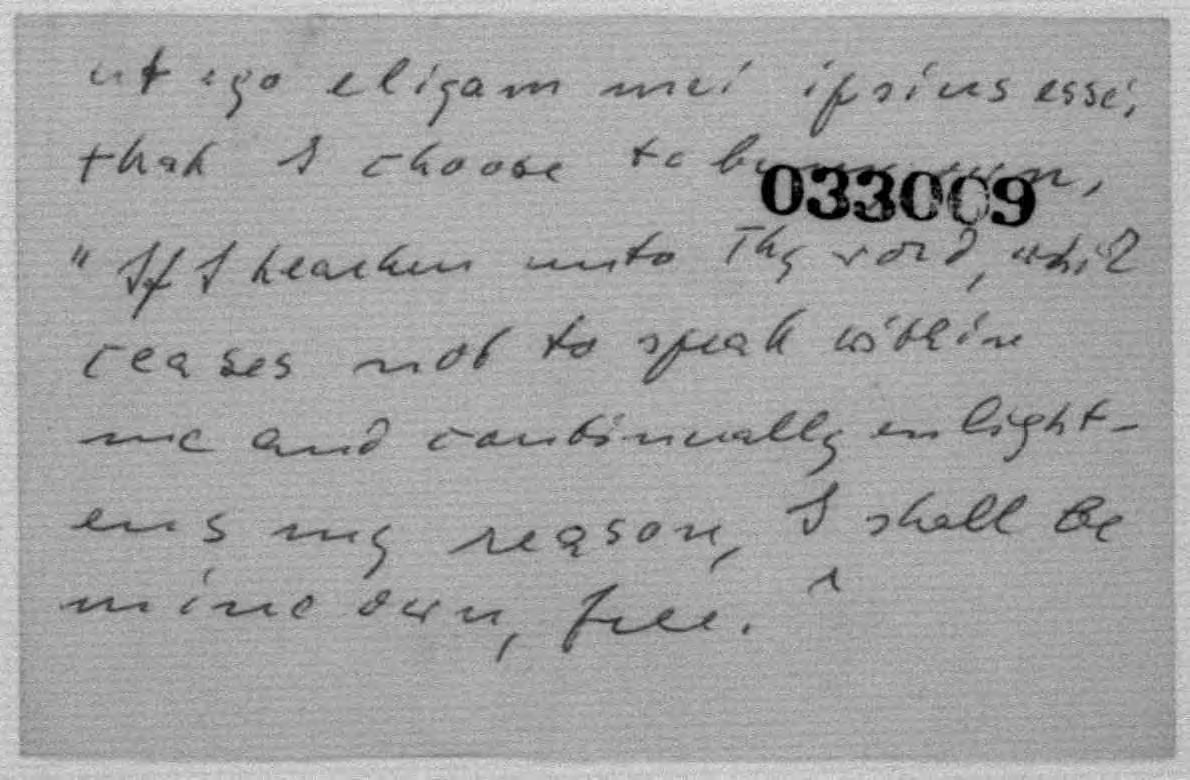 ut ego eligam mei ipsius esse,
that I choose to be own,
033009
"If I hearken unto Thy word, which
ceases not to speak within
me and continually enlight-
ens my reason, I shall be
mine own, free."